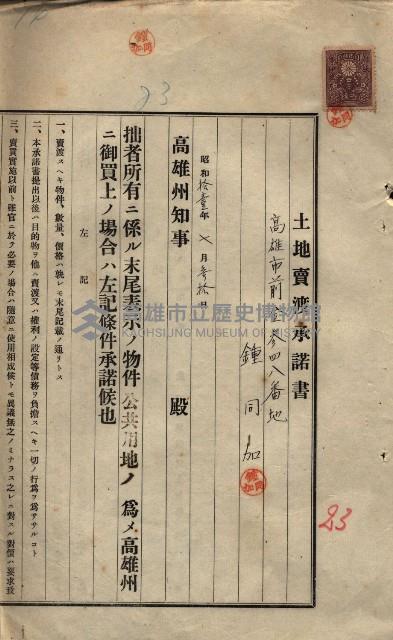 23
土地賣渡承諾書
高雄市前金参四八番地
鍾同加
昭和拾壹年七月参拾日
高雄州知事 殿
拙者所有ニ係ル末尾表示ノ物件公共用地ノ爲メ高雄州
ニ御買上ノ場合ハ左記條件承諾候也
左記
一、賣渡スヘキ物件、數量、價格ハ執レモ末尾記載ノ通リトス
二、本承諾書提出以後ハ目的物ヲ他ニ賣渡又ハ權利ノ設定等債務ヲ負擔スヘキ一切ノ行爲ヲ爲ササルコト
三、賣買實施以前ト雖官ニ於テ必要ノ場合ハ隨意ニ使用相成候トモ異議無之ノミナラス之レニ對スル對價ハ要求致
高雄市立歷史博物館
KAOHSIUNG MUSEUM OF HISTORY
23